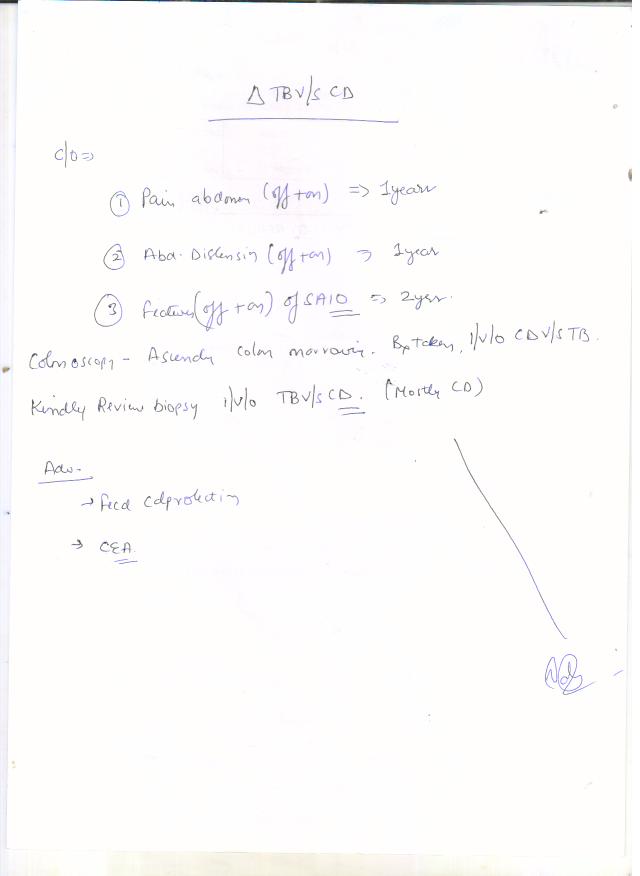 Δ TB V/S CD
C/O ⇒
① Pain abdomen (off + on) ⇒ 1 year
② Abd. Distensin (off + on) ⇒ 1 year
③ Features (off + on) of SAIO ⇒ 2 yer.
Colonoscopy - Ascendy colon narrowing. Bx taken, I/V/O CD V/S TB.
Kindly Review biopsy I/V/O TB V/S CD. (Mostly CD)
Adv-
→ Fecal Calprotectin
→ CEA.